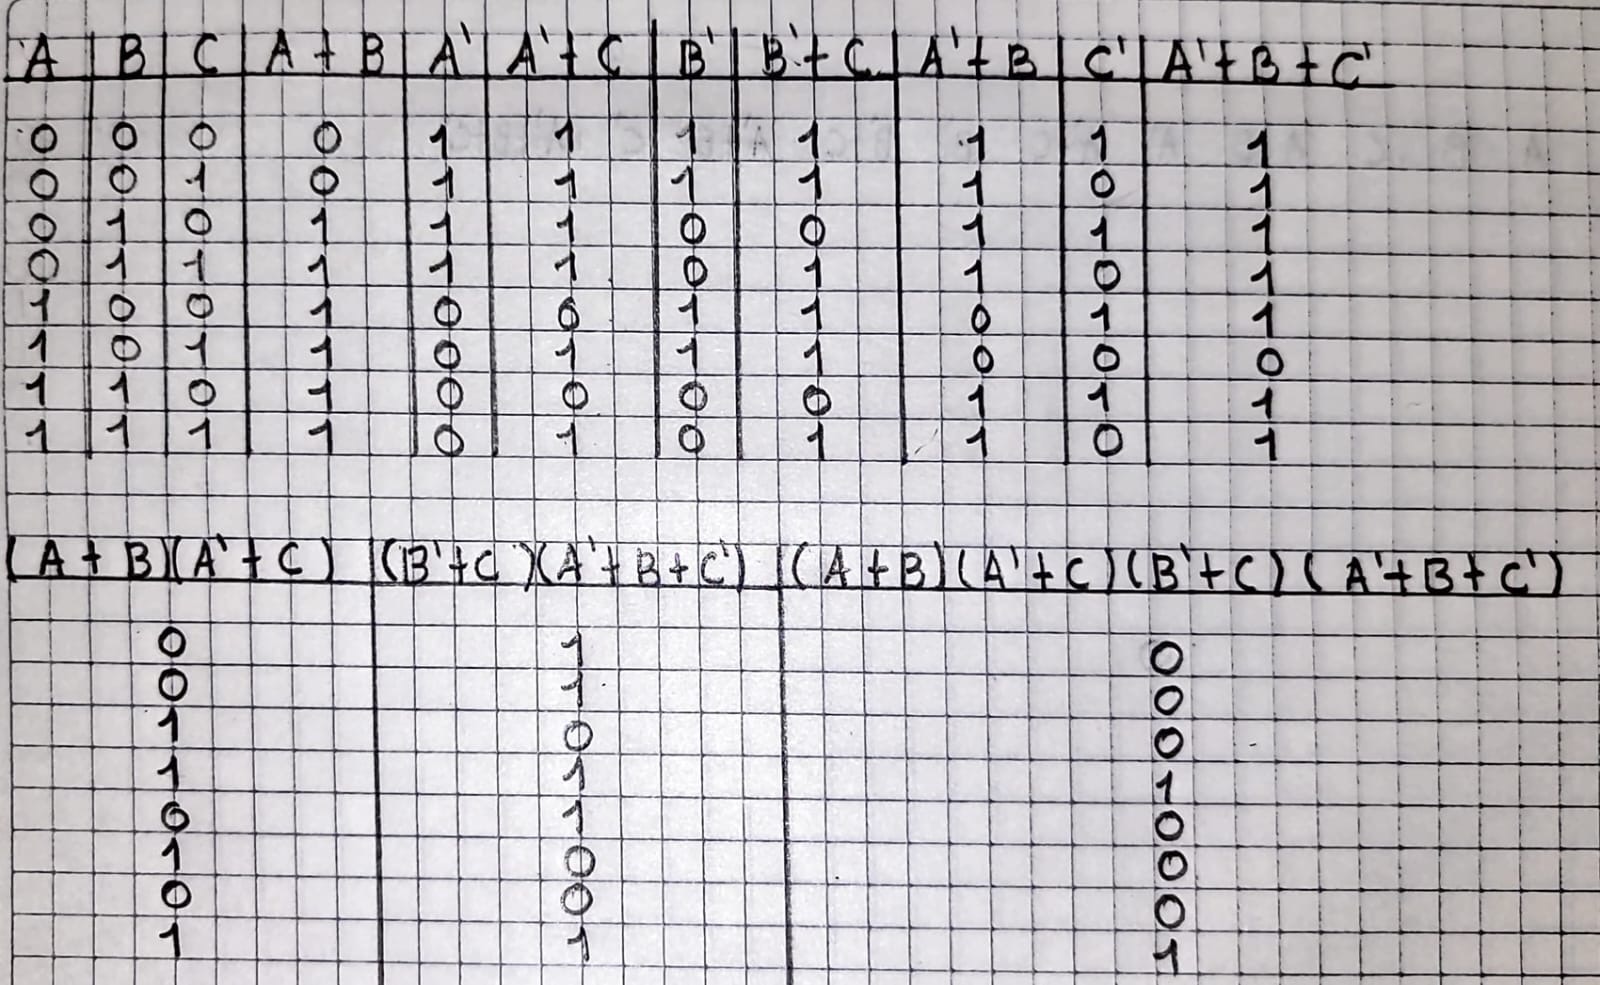 A B C A + B A' A' + C B' B' + C A' + B C' A' + B + C'
0 0 0 0 1 1 1 1 1 1 1
0 0 1 0 1 1 1 1 1 0 1
0 1 0 1 1 1 0 0 1 1 1
0 1 1 1 1 1 0 1 1 0 1
1 0 0 1 0 0 1 1 0 1 1
1 0 1 1 0 1 1 1 0 0 0
1 1 0 1 0 0 0 0 1 1 1
1 1 1 1 0 1 0 1 1 0 1
(A + B)(A' + C) (B' + C)(A' + B + C') (A + B)(A' + C)(B' + C)(A' + B + C')
0 1 0
0 1 0
1 0 0
1 1 1
0 1 0
1 0 0
0 0 0
1 1 1